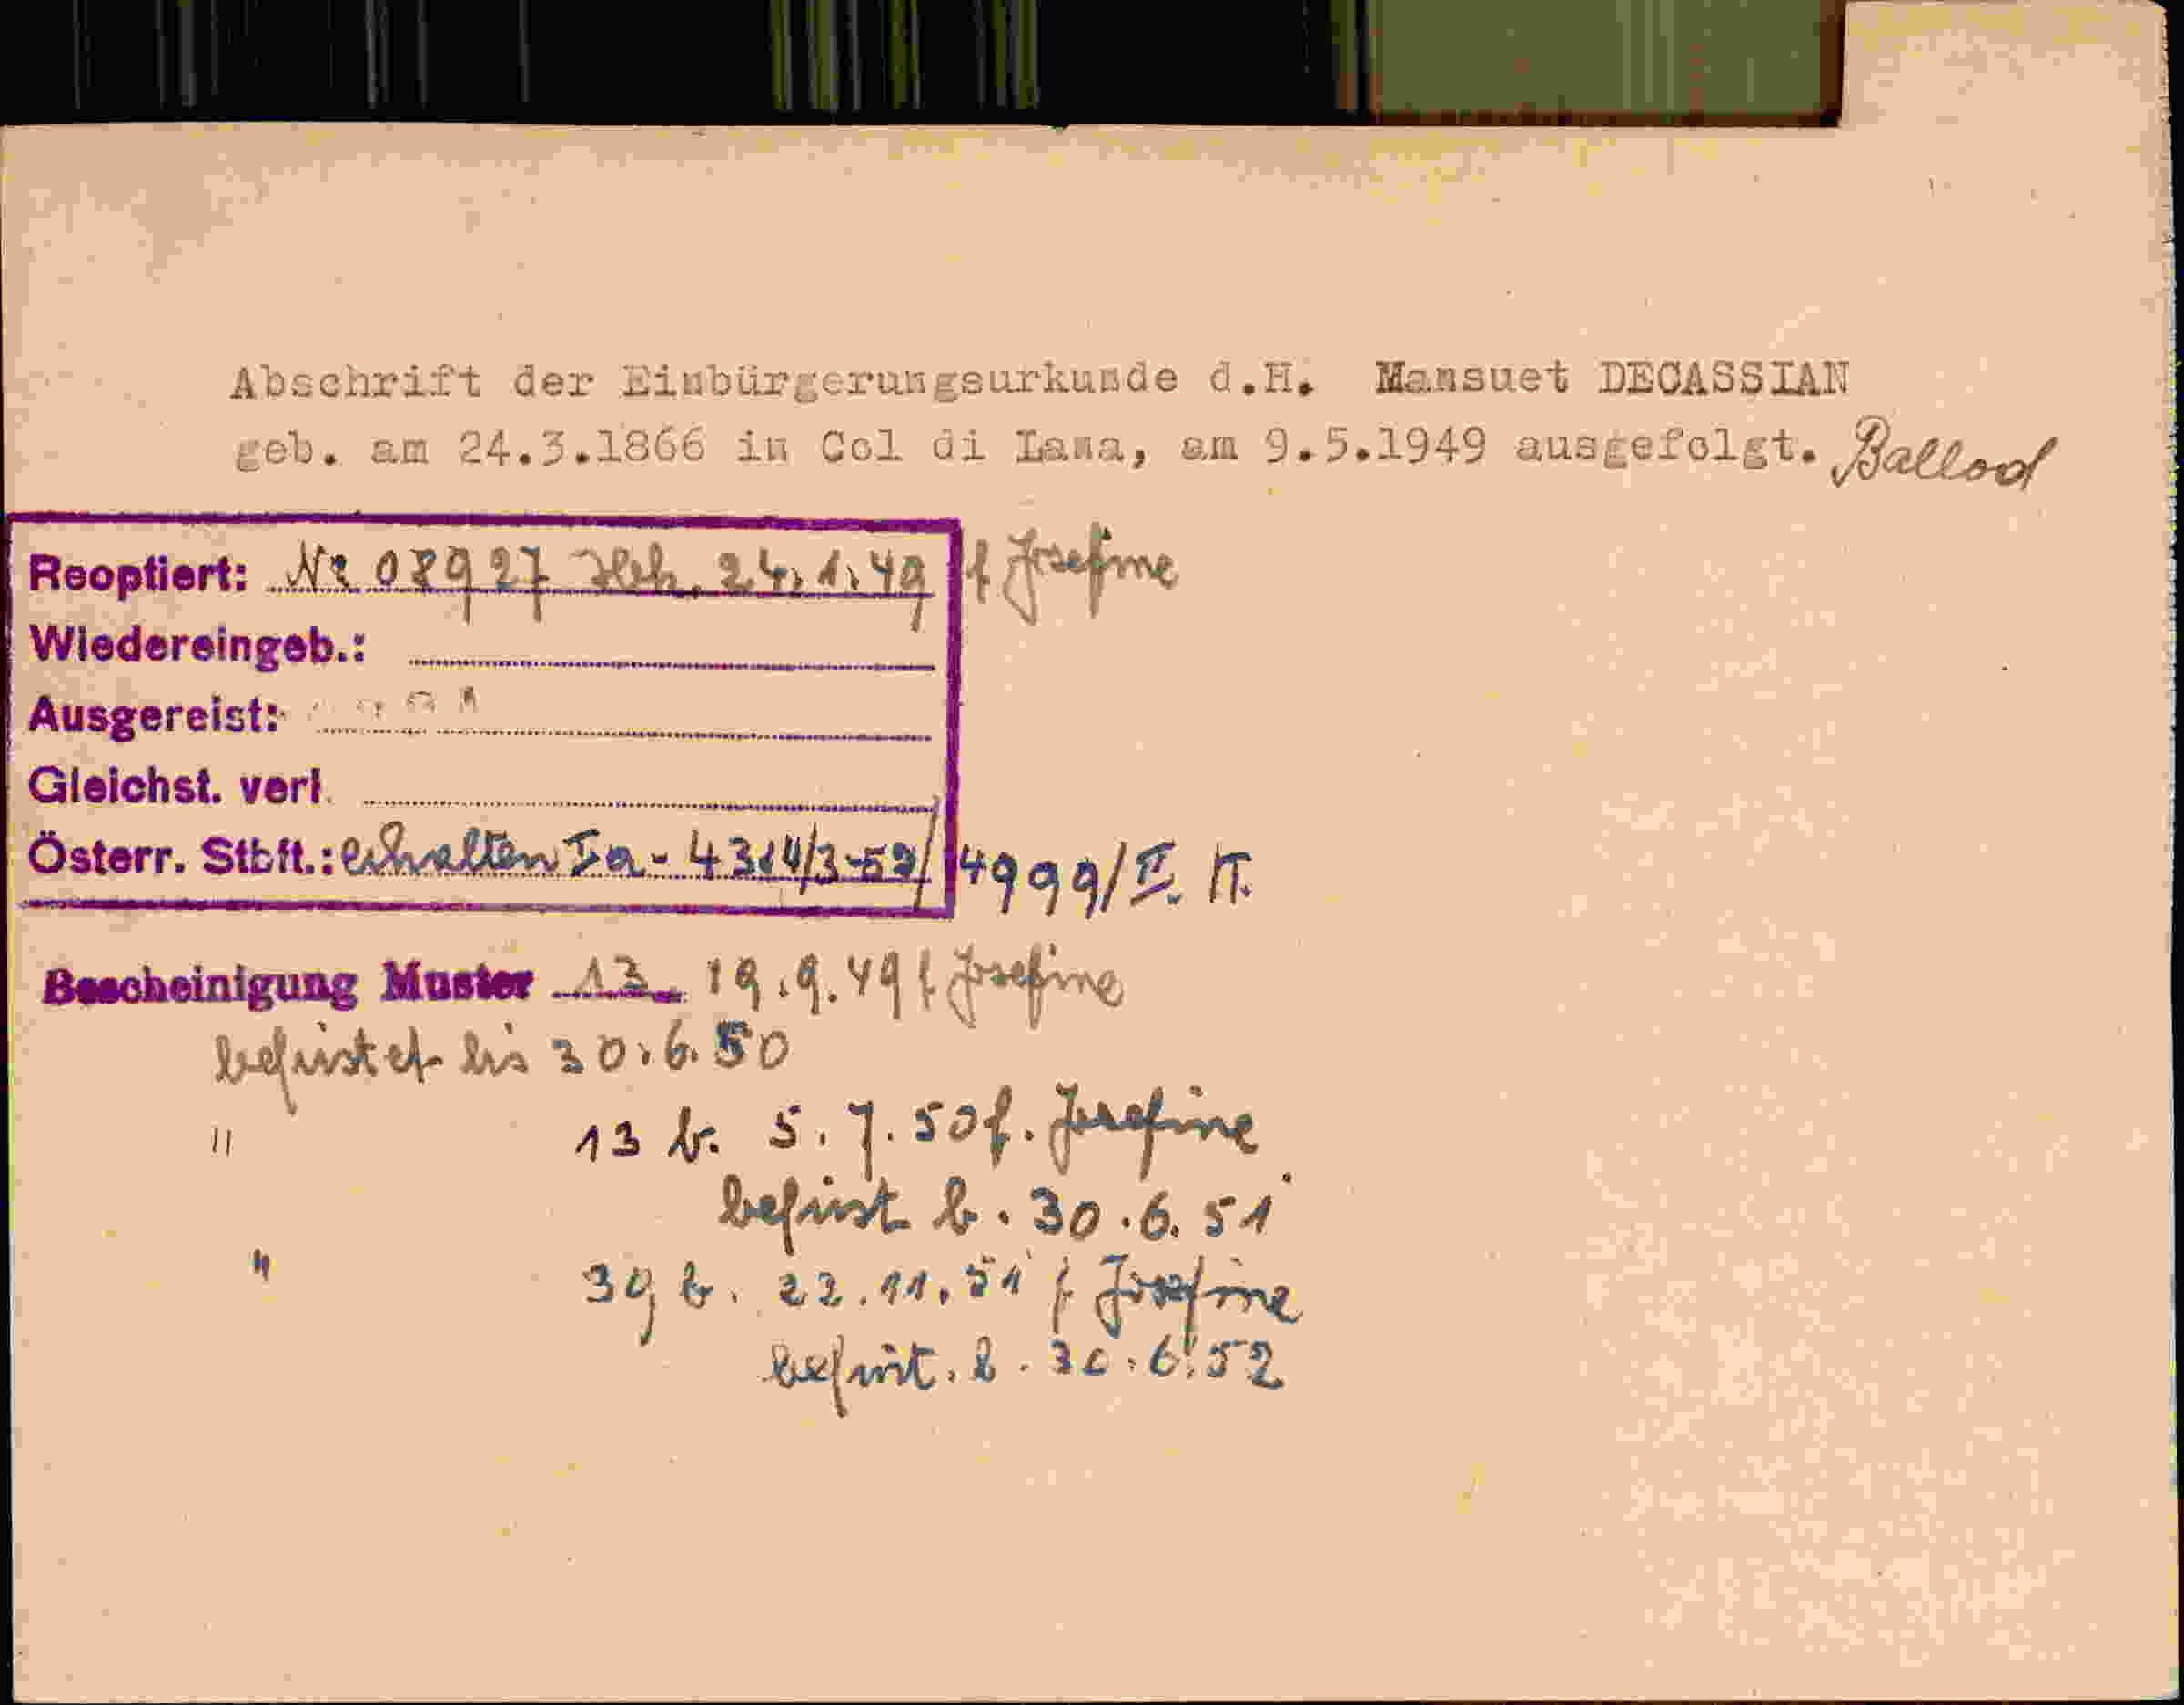 Abschrift der Einbürgerungsurkunde d.H. Mansuet DECASSIAN
geb. am 24.3.1866 in Col di Lana, am 9.5.1949 ausgefolgt. Ballod
Reoptiert: Nr 08927 24.1.49 f Josefine
Wiedereingeb.:
Ausgereist:
Gleichst. verl.
Österr. Stbft.: erhalten Ia - 4314/3-52/4999/II. IT.
Bescheinigung Muster 13 19.9.49 f Josefine
befristet bis 30.6.50
" 13 b. 5.7.50 f. Josefine
befrist b. 30.6.51
" 39 b. 22.11.51 f Josefine
befrist. b. 30.6.52